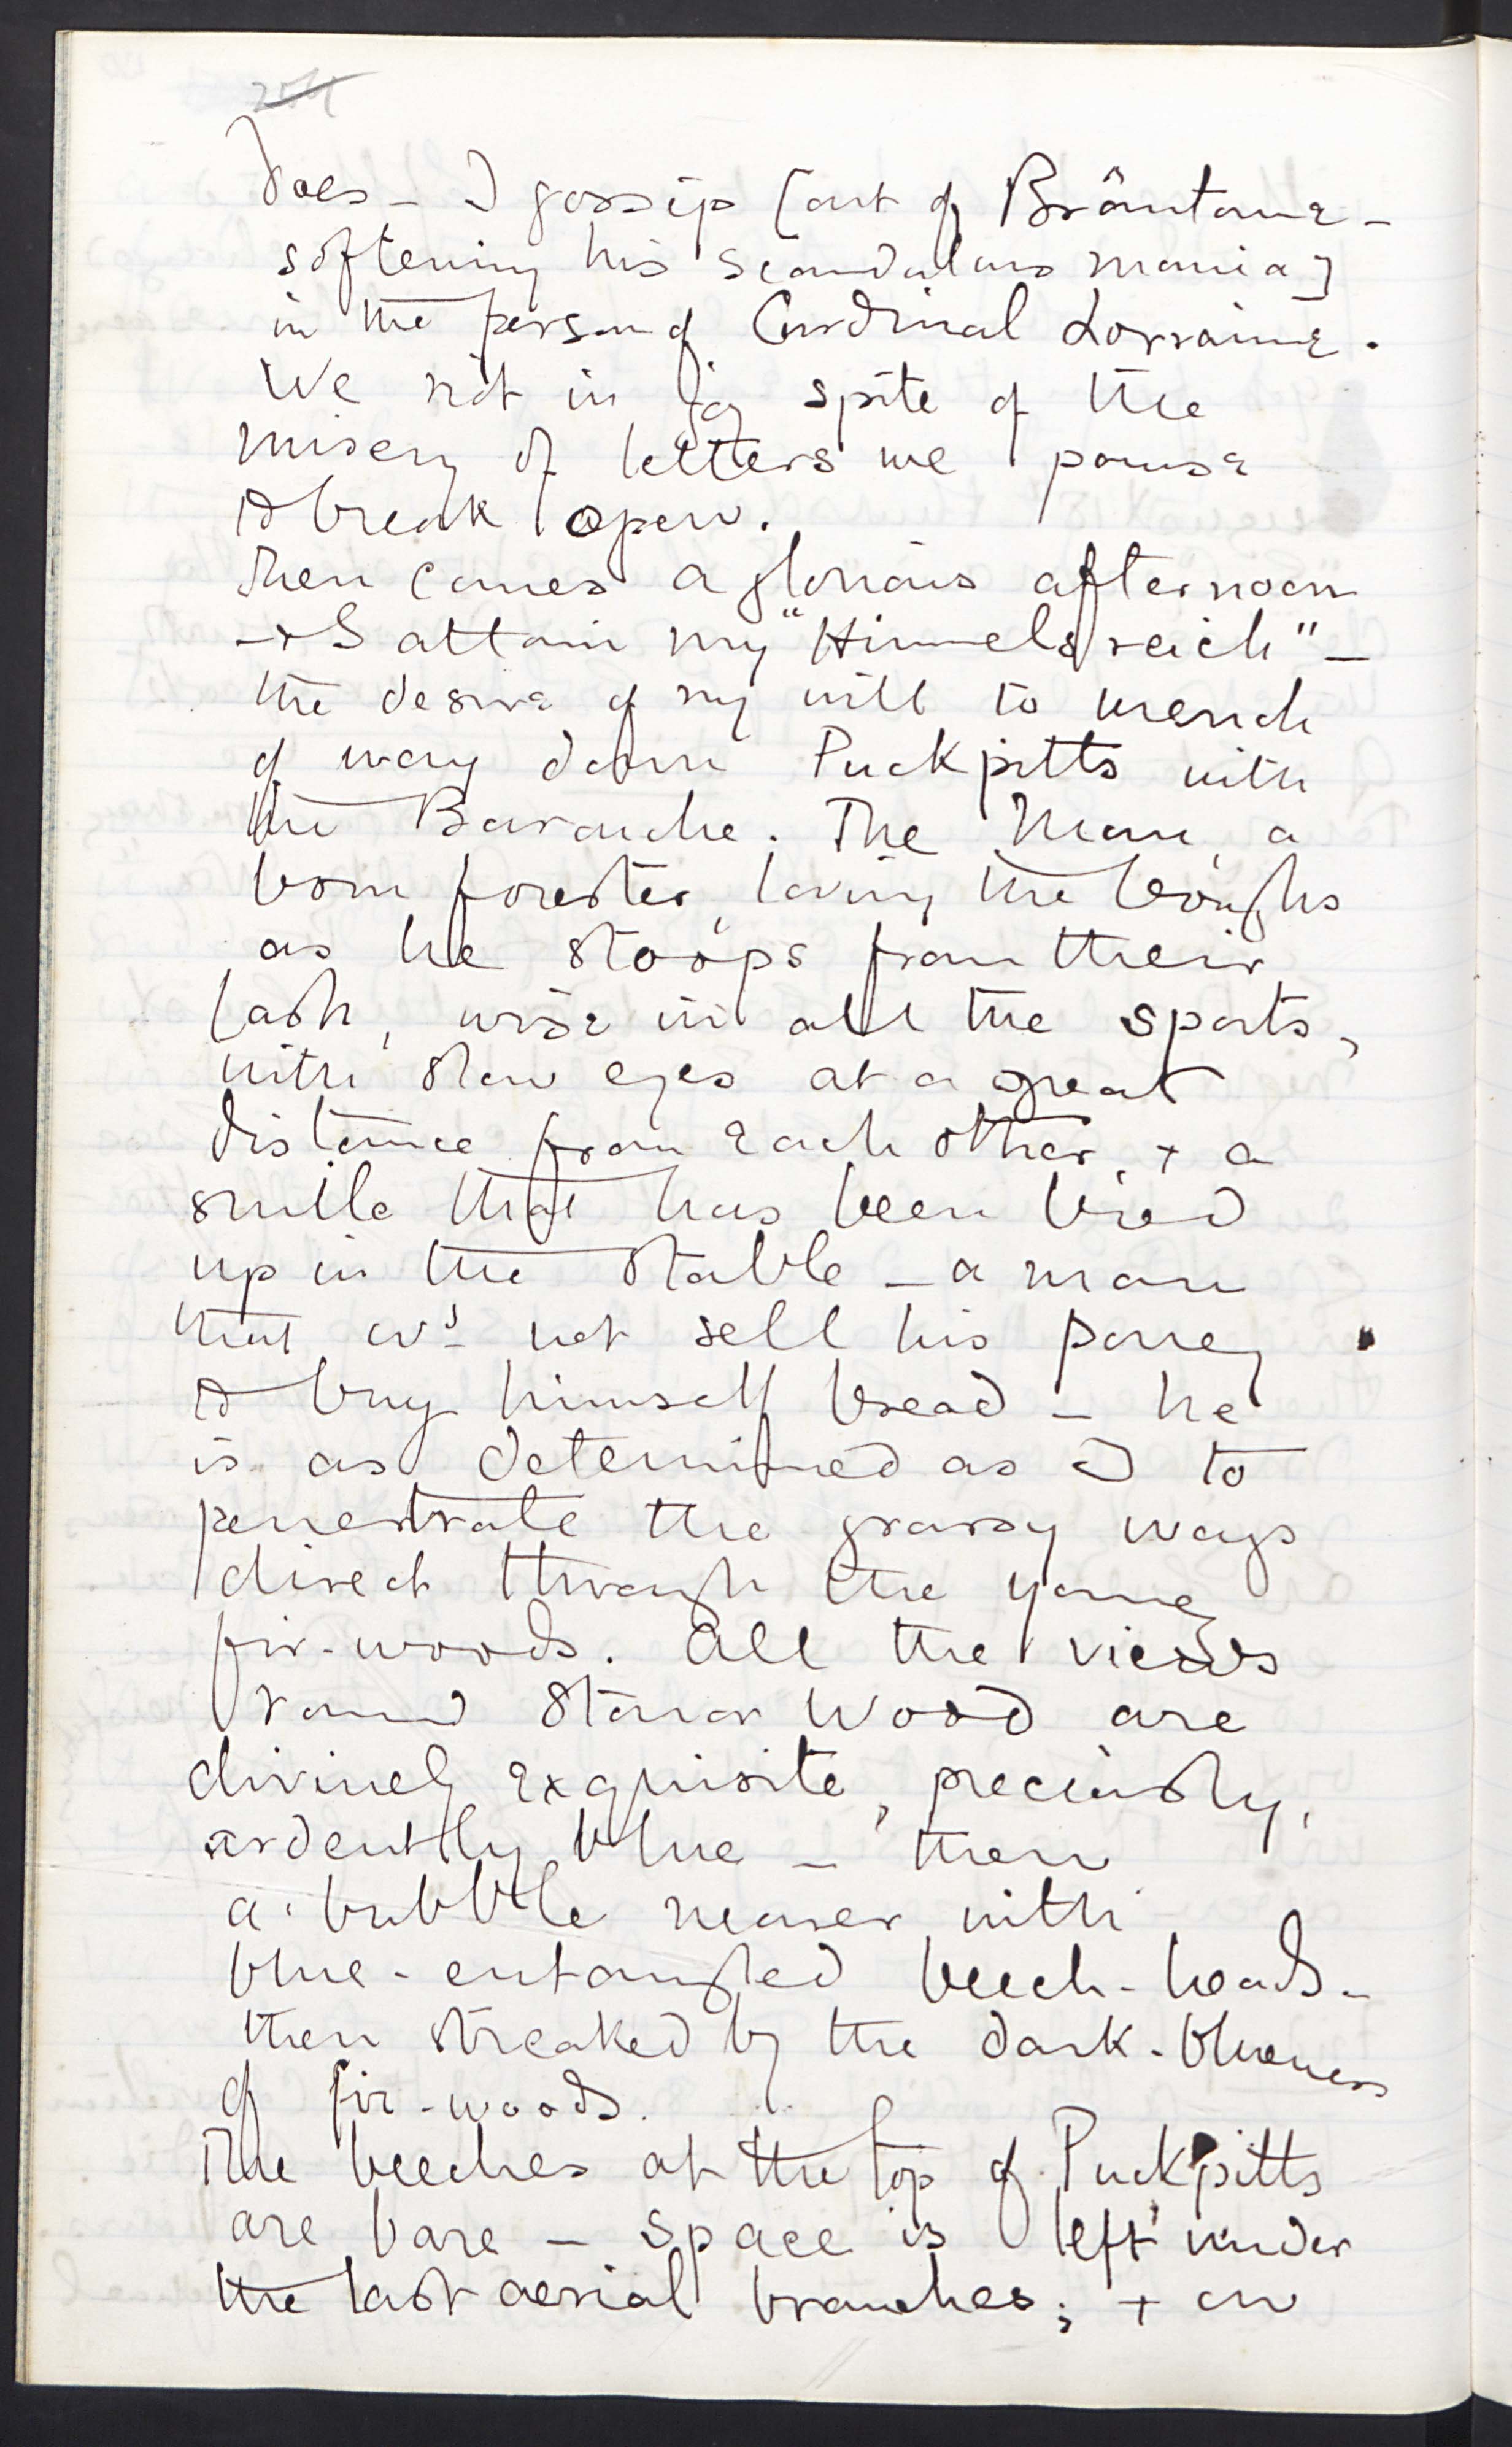 does – I gossip [out of Brântome –
softening his scandalous mania]
in the person of Cardinal Lorraine.
We riot in joy spite of the
misery of letters we pause
to break open.
Then comes a glorious afternoon
– & I attain my "Himmelsreich" –
the desire of my will to wend
my way down Puckpitts with
the Barouche. The Man, a
born forester, loving the boughs
as he stoops from their
lash, wise in all the sports,
with slow eyes at a great
distance from each other, + a
smile that has been bred
up in the stable – a man
that wd not sell his poney
to buy himself bread – he
is as determined as I to
penetrate the grassy ways
direct through the young
fir-woods. All the views
round Stoner Wood are
divinely exquisite, preciously,
ardently blue – then
a bubble nearer with
blue-entangled beech-heads –
then streaked by the dark-blueness
of fir-woods.
The beeches at the top of Puckpitts
are bare – space is left under
the last aerial branches; + on